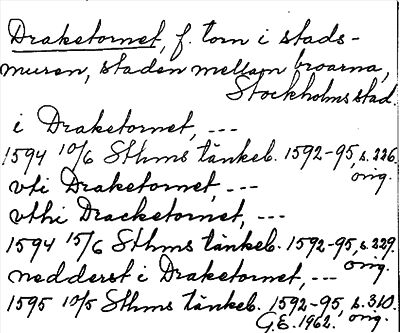 Draketornet, f. torn i stads-
muren, staden mellan broarna,
Stockholms stad.
i Draketornet, ---
1594 10/6 Sthms tänkeb. 1592-95, s. 226.
orig.
vti Draketornet, ---
vthi Dracketornet, ---
1594 15/6 Sthms tänkeb. 1592-95, s. 229.
orig.
nedderst i Draketornet, ---
1595 10/5 Sthms tänkeb. 1592-95, s. 310.
G.E. 1962. orig.